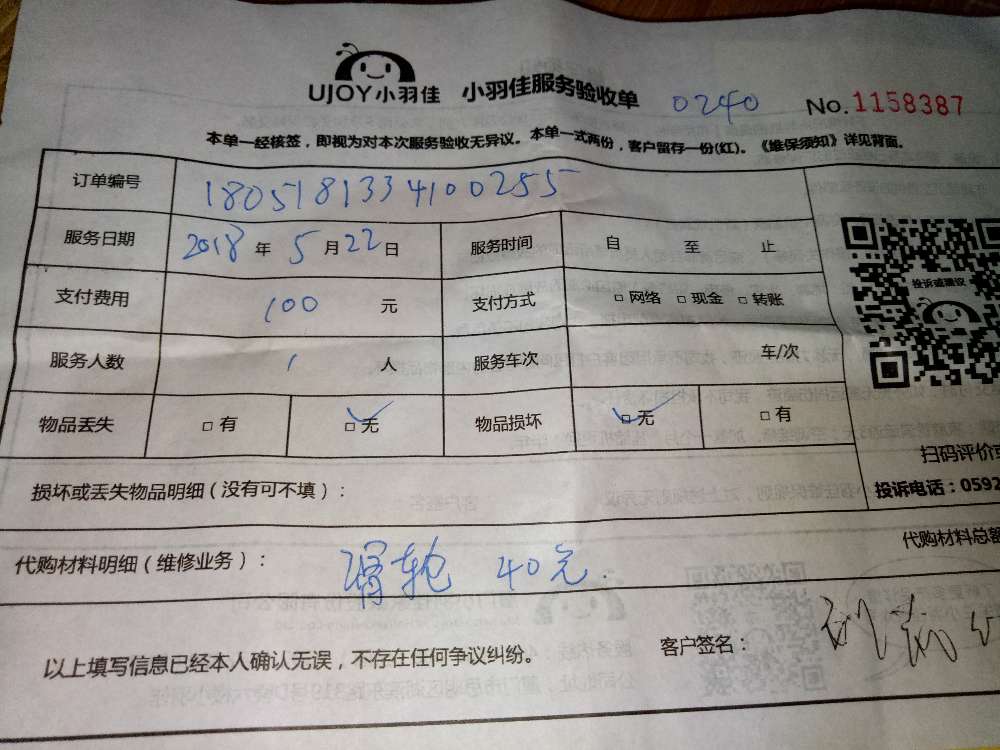 UJOY小羽佳 小羽佳服务验收单 0240 No.1158387
本单一经核签，即视为对本次服务验收无异议。本单一式两份，客户留存一份(红)。《维保须知》详见背面。
订单编号 1805181334100255
服务日期 2018年5月22日 服务时间 自 至 止
投诉或建议
支付费用 100元 支付方式 □网络 □现金 □转账
服务人数 1人 服务车次 车/次
物品丢失 □有 □无 物品损坏 □无 □有
扫码评价或
损坏或丢失物品明细（没有可不填）：
投诉电话：0592
代购材料明细（维修业务）： 滑轮 40元
代购材料总额
以上填写信息已经本人确认无误，不存在任何争议纠纷。 客户签名：